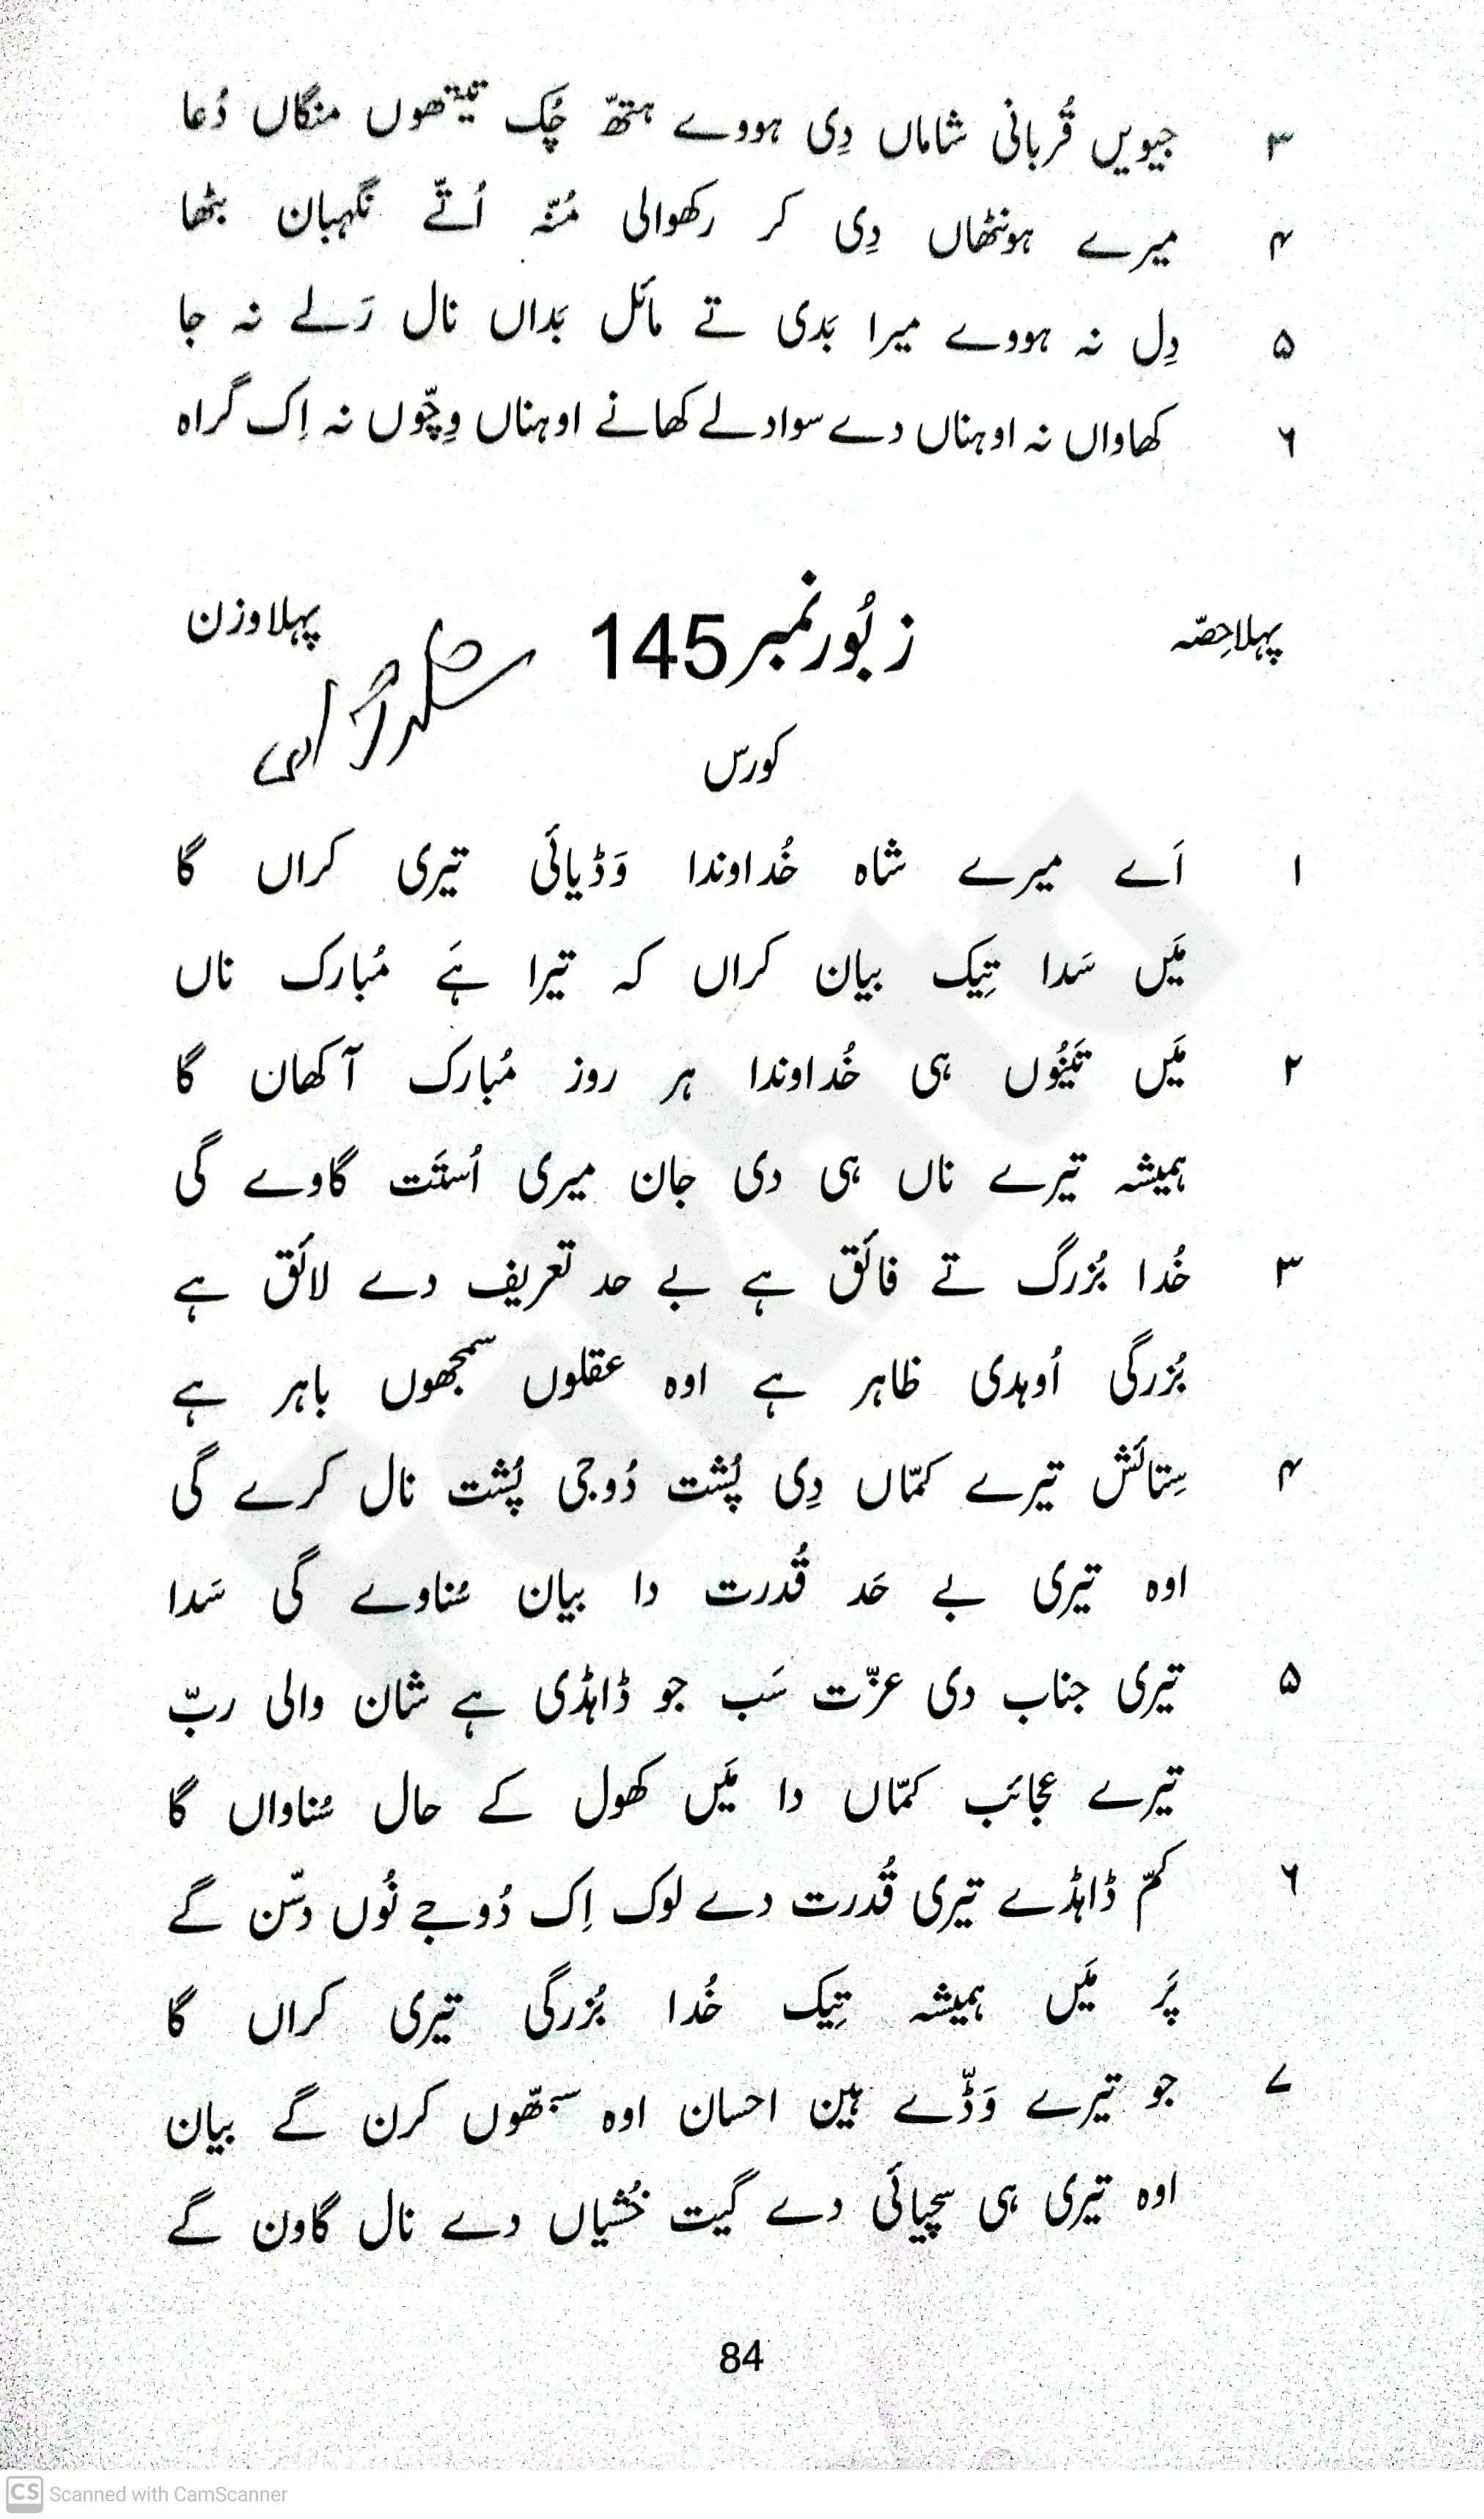 ۳ جیویں قُربانی شاماں دِی ہووے ہتھّ چُک تیتھوں منگاں دُعا
۴ میرے ہونٹھاں دِی کر رکھوالی مُنّہ اُتّے نگہبان بٹھا
۵ دِل نہ ہووے میرا بَدی تے مائل بَداں نال رَلے نہ جا
۶ کھاواں نہ اوہناں دے سوادلے کھانے اوہناں وِچّوں نہ اِک گراہ
پہلا حِصّہ زبُور نمبر 145 پہلا وزن
کورس
۱ اَے میرے شاہ خُداوندا وَڈیائی تیری کراں گا
مَیں سَدا تِیک بیان کراں کہ تیرا ہَے مُبارک ناں
۲ مَیں تَینُوں ہی خُداوندا ہر روز مُبارک آکھان گا
ہمیشہ تیرے ناں ہی دی جان میری اُستَت گاوے گی
۳ خُدا بُزرگ تے فائق ہے بے حد تعریف دے لائق ہے
بُزرگی اُوہدی ظاہر ہے اوہ عقلوں سمجھوں باہر ہے
۴ سِتائش تیرے کمّاں دِی پُشت دُوجی پُشت نال کرے گی
اوہ تیری بے حَد قُدرت دا بیان سُناوے گی سَدا
۵ تیری جناب دی عزّت سَب جو ڈاہڈی ہے شان والی ربّ
تیرے عجائب کمّاں دا مَیں کھول کے حال سُناواں گا
۶ کمّ ڈاہڈے تیری قُدرت دے لوک اِک دُوجے نُوں دسّن گے
پَر مَیں ہمیشہ تِیک خُدا بُزرگی تیری کراں گا
۷ جو تیرے وَڈّے ہین احسان اوہ سبھّوں کرن گے بیان
اوہ تیری ہی سچیائی دے گیت خُشیاں دے نال گاون گے
84
CS Scanned with CamScanner